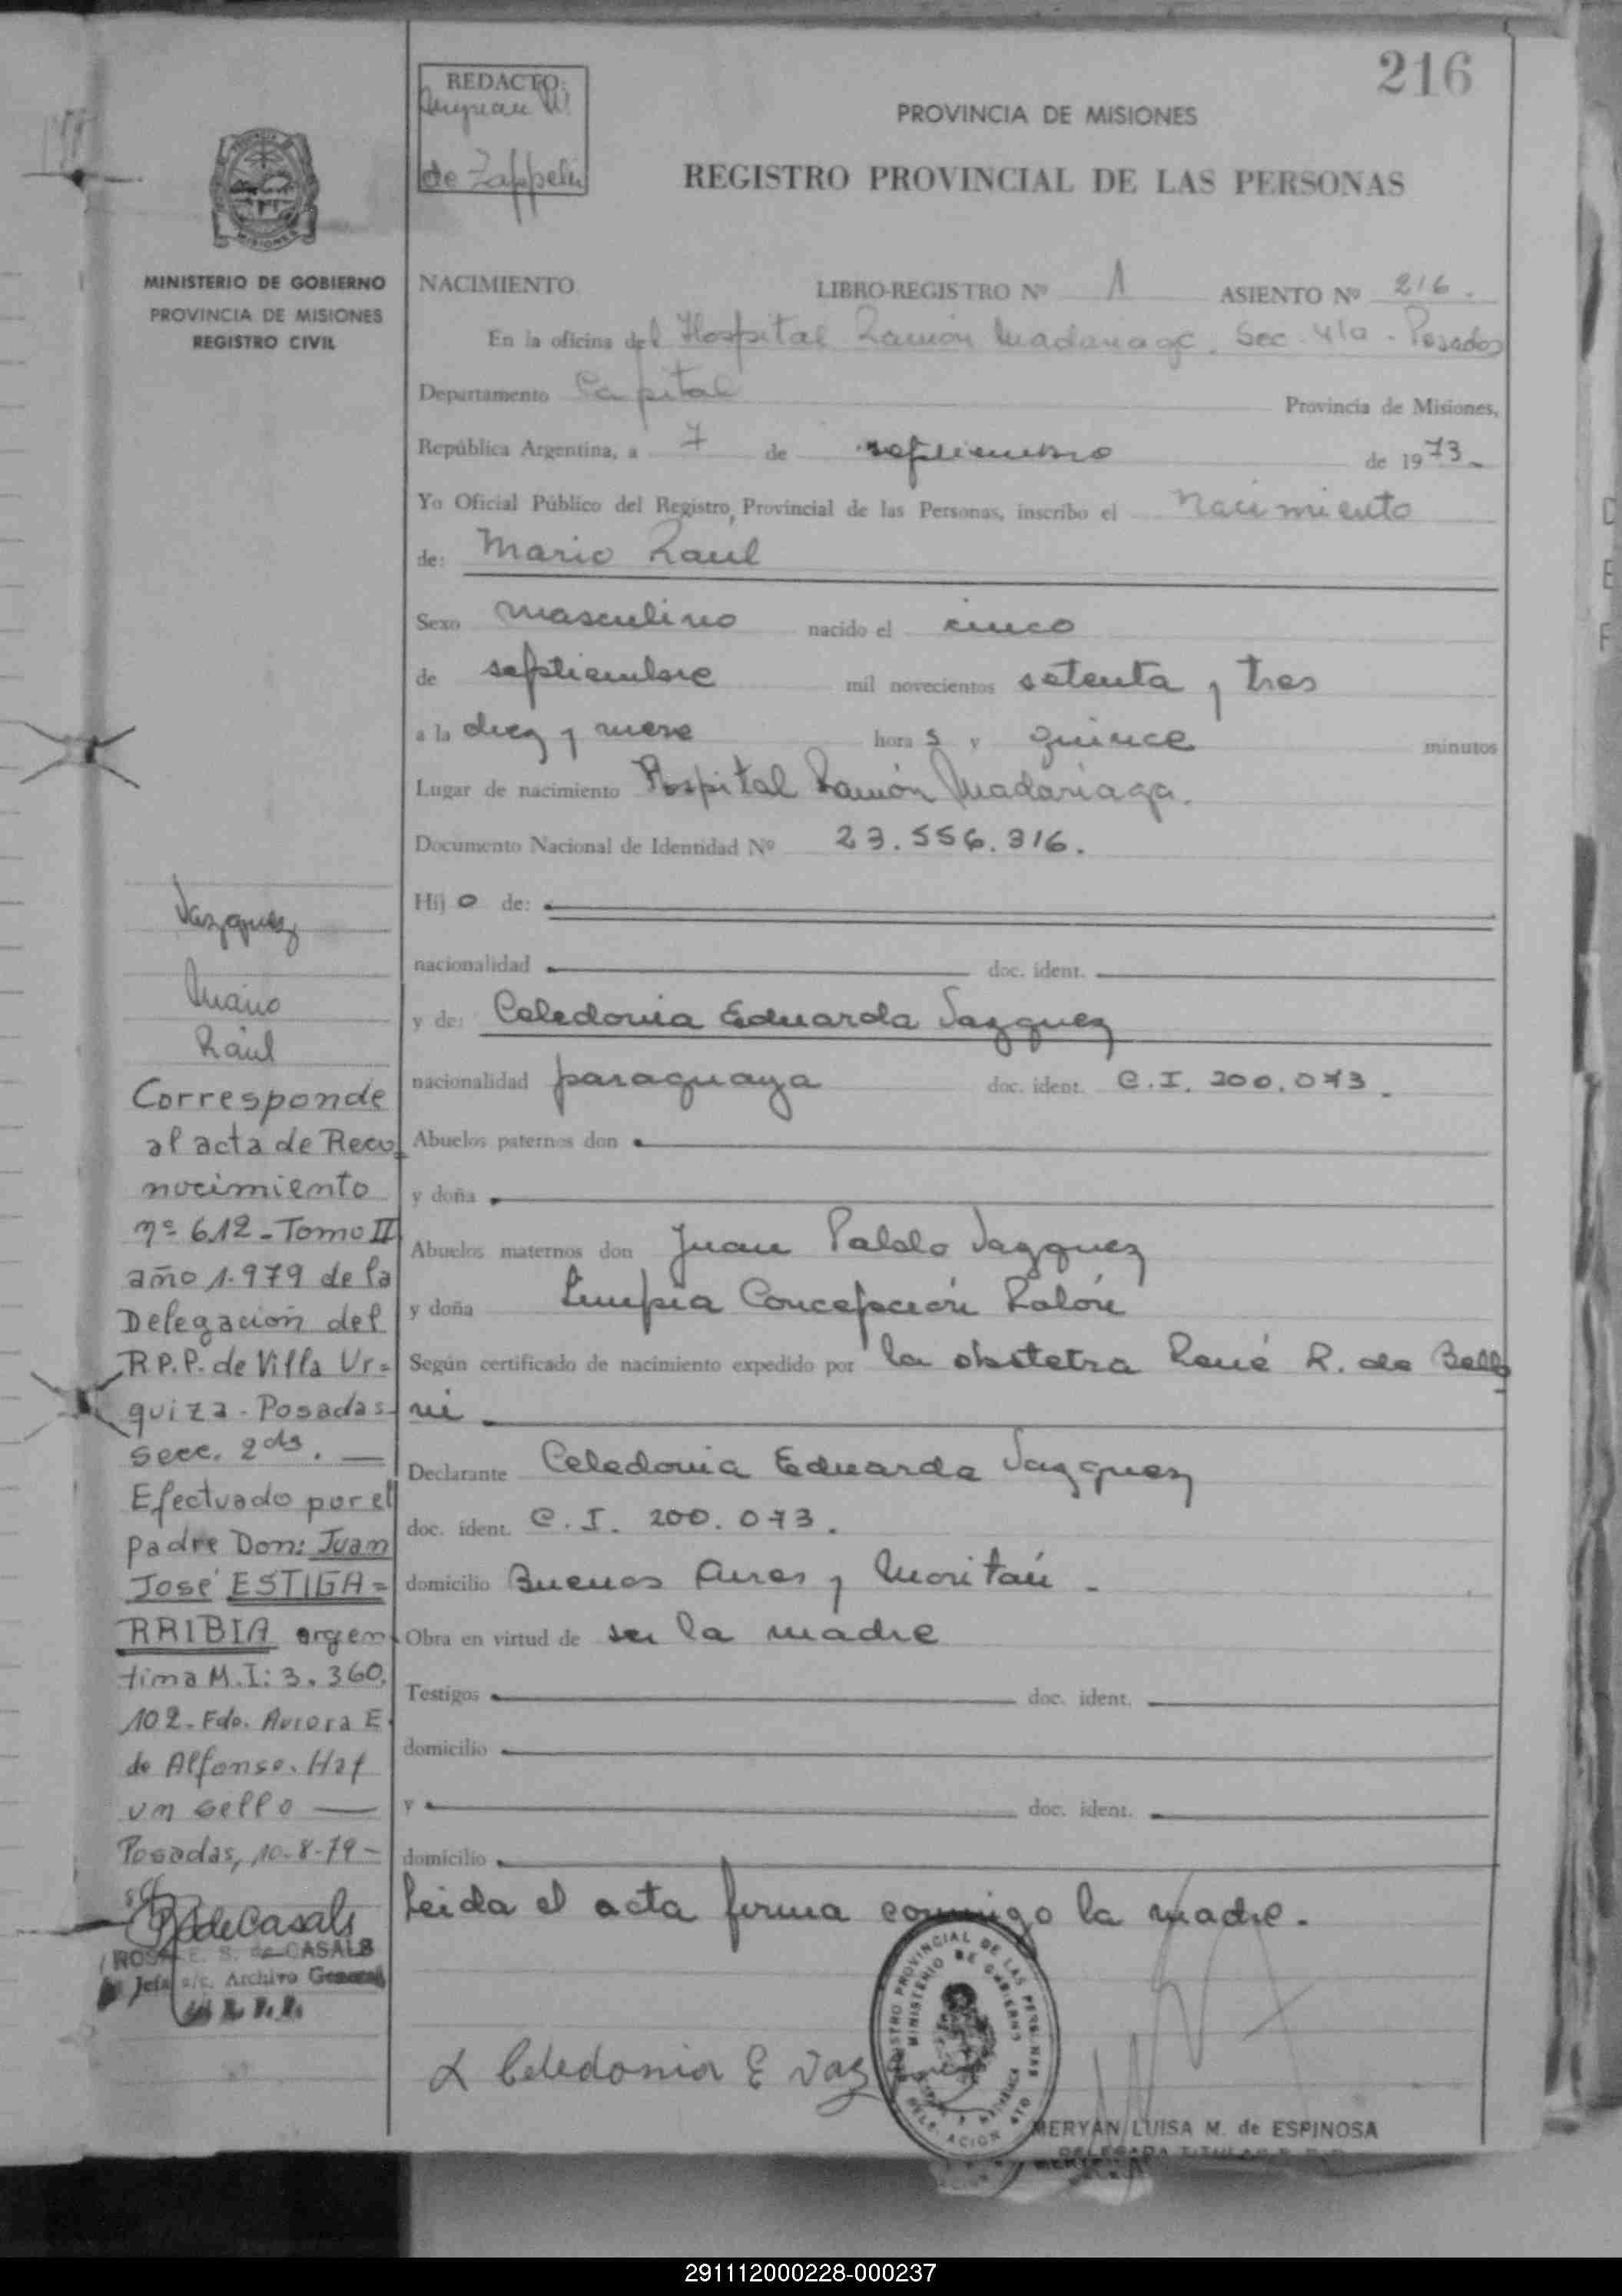 216
REDACTO:
de Zappelli
PROVINCIA DE MISIONES
REGISTRO PROVINCIAL DE LAS PERSONAS
MISIONES
MINISTERIO DE GOBIERNO
PROVINCIA DE MISIONES
REGISTRO CIVIL
NACIMIENTO LIBRO-REGISTRO Nº 1 ASIENTO Nº 216.
En la oficina del Hospital Ramón Madariaga. Sec. 4ta - Posadas
Departamento Capital Provincia de Misiones,
República Argentina, a 7 de septiembre de 1973.
Yo Oficial Público del Registro Provincial de las Personas, inscribo el Nacimiento
de: Mario Raul
Sexo masculino nacido el cinco
de septiembre mil novecientos setenta y tres
a la diez y nueve horas y quince minutos
Lugar de nacimiento Hospital Ramón Madariaga.
Documento Nacional de Identidad Nº 23.556.316.
Hijo de:
nacionalidad doc. ident.
y de: Celedonia Eduarda Vazquez
nacionalidad paraguaya doc. ident. C.I. 200.073.
Abuelos paternos don
y doña
Abuelos maternos don Juan Pablo Vazquez
y doña Limpia Concepción Rolón
Según certificado de nacimiento expedido por la obstetra René R. de Bello
ni
Declarante Celedonia Eduarda Vazquez
doc. ident. C.I. 200.073.
domicilio Buenos Aires y
Obra en virtud de ser la madre
Testigos doc. ident.
domicilio
y doc. ident.
domicilio
Leida el acta firma conmigo la madre.
Celedonia E Vaz
REGISTRO PROVINCIAL DE LAS PERSONAS
MINISTERIO DE GOBIERNO
MERYAN LUISA M. de ESPINOSA
DELEGADA TITULAR
Vazquez
Mario
Raúl
Corresponde
al acta de Reco
nocimiento
nº 612 - Tomo II
año 1.979 de la
Delegación del
R.P.P. de Villa Ur=
quiza - Posadas
secc. 2da. —
Efectuado por el
padre Don: Juan
José ESTIGA=
RRIBIA argen
tina M.I: 3.360.
102 - Fdo. Aurora E.
de Alfonso. Hay
un sello —
Posadas, 10-8-79 -
R de Casals
ROSA E. S. de CASALS
Jefa a/c. Archivo General
291112000228-000237